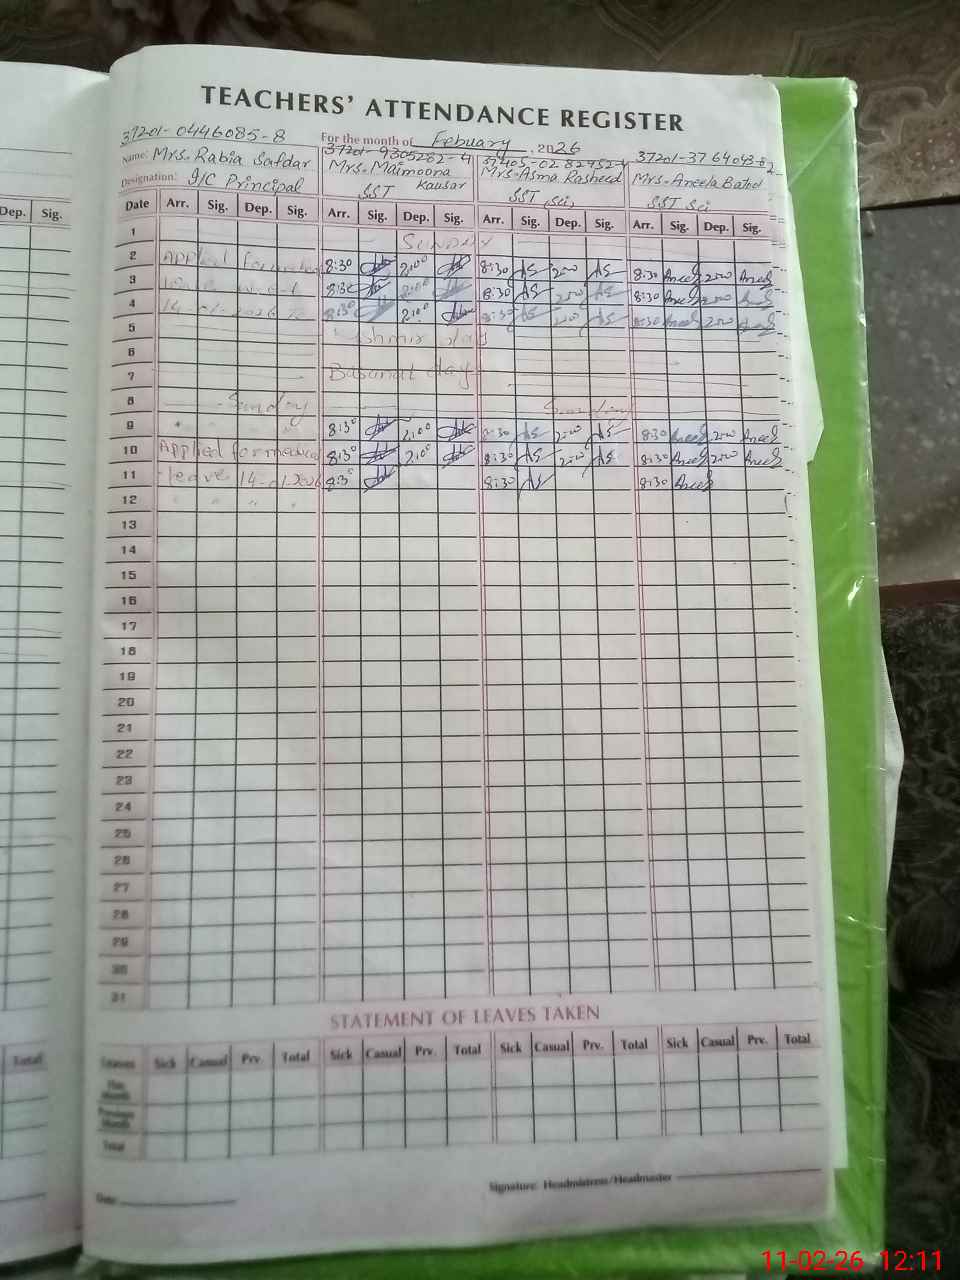 TEACHERS' ATTENDANCE REGISTER
For the month of Febuary , 2026
37201-0446085-8 37201-9305282-4 37405-0282952-4 37201-3764093-8
Name: Mrs. Rabia Safdar Mrs. Maimoona Kausar Mrs. Asma Rasheed Mrs. Aneela Batool
Designation: I/C Principal SST SST Sci, SST Sci
Dep. Sig.
Date Arr. Sig. Dep. Sig. Arr. Sig. Dep. Sig. Arr. Sig. Dep. Sig. Arr. Sig. Dep. Sig.
1 SUNDAY
2 Applied for 8:30 2:00 8:30 AS 2:00 AS 8:30 Aneela 2:00 Aneela
3 8:30 2:00 8:30 AS 2:00 AS 8:30 Aneela 2:00 Aneela
4 8:30 2:00 8:30 AS 2:00 AS 8:30 Aneela 2:00 Aneela
5 Kashmir day
6
7 Basunat day
8 Sunday Sunday
9 " 8:30 2:00 8:30 AS 2:00 AS 8:30 Aneela 2:00 Aneela
10 Applied for medical 8:30 2:00 8:30 AS 2:00 AS 8:30 Aneela 2:00 Aneela
11 leave 14-01-2026 8:30 8:30 AS 8:30 Aneela
12 " " " "
13
14
15
16
17
18
19
20
21
22
23
24
25
26
27
28
29
30
31
STATEMENT OF LEAVES TAKEN
Total
Leaves Sick Casual Prv. Total Sick Casual Prv. Total Sick Casual Prv. Total Sick Casual Prv. Total
This Month
Previous Month
Total
Date: Signature: Headmistress/Headmaster
11-02-26 12:11